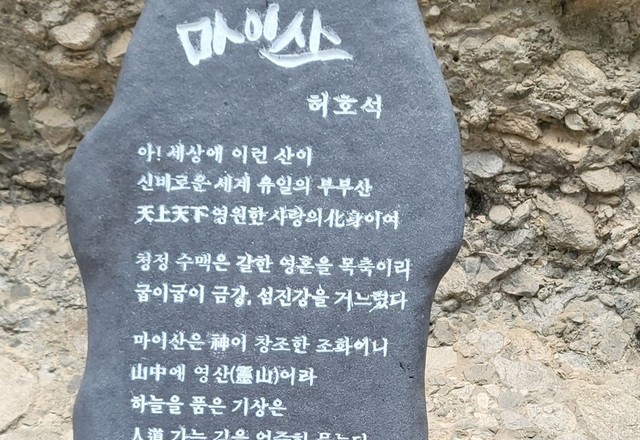 마이산
허호석
아! 세상에 이런 산이
신비로운 세계 유일의 부부산
天上天下 영원한 사랑의 化身이여
청정 수맥은 갈한 영혼을 목축이라
굽이굽이 금강, 섬진강을 거느렸다
마이산은 神이 창조한 조화이니
山中에 영산(靈山)어라
하늘을 품은 기상은
人道 가는 길을